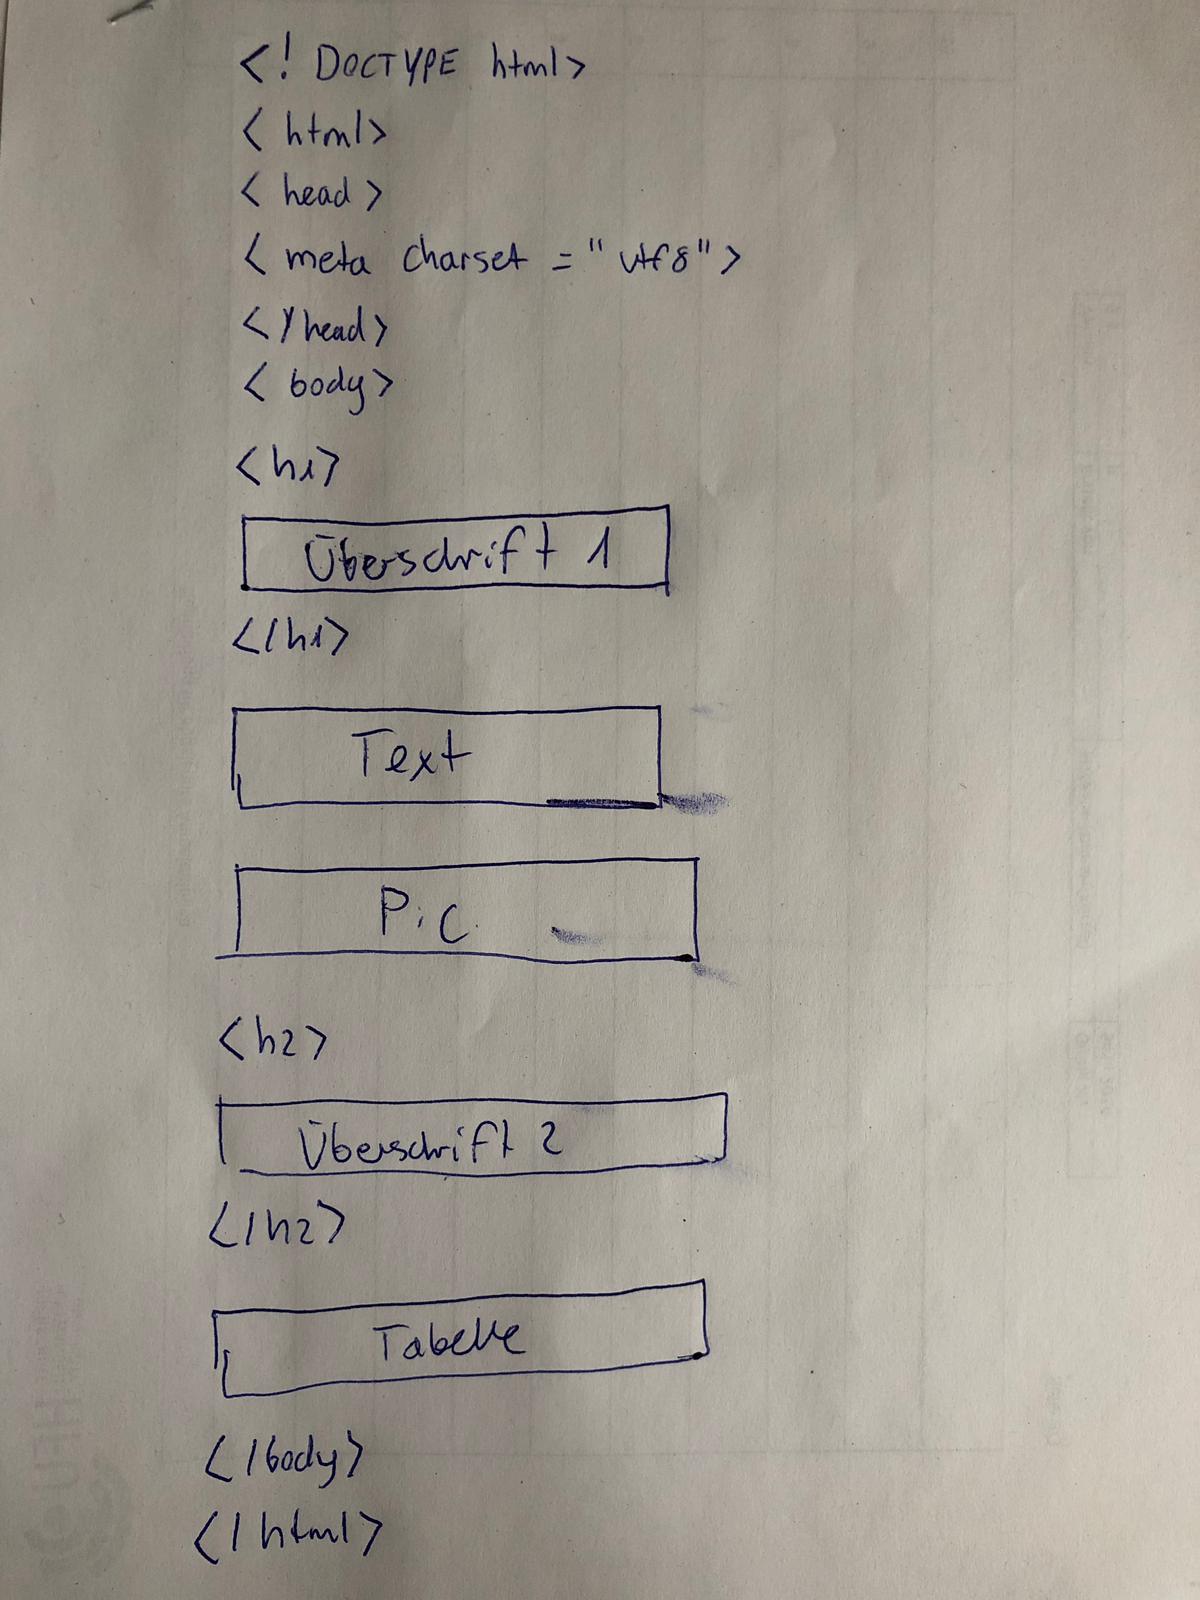 <! DOCTYPE html>
< html>
< head >
< meta charset = "utf8">
</head>
< body>
<h1>
Überschrift 1
</h1>
Text
Pic
<h2>
Überschrift 2
</h2>
Tabelle
</body>
</html>